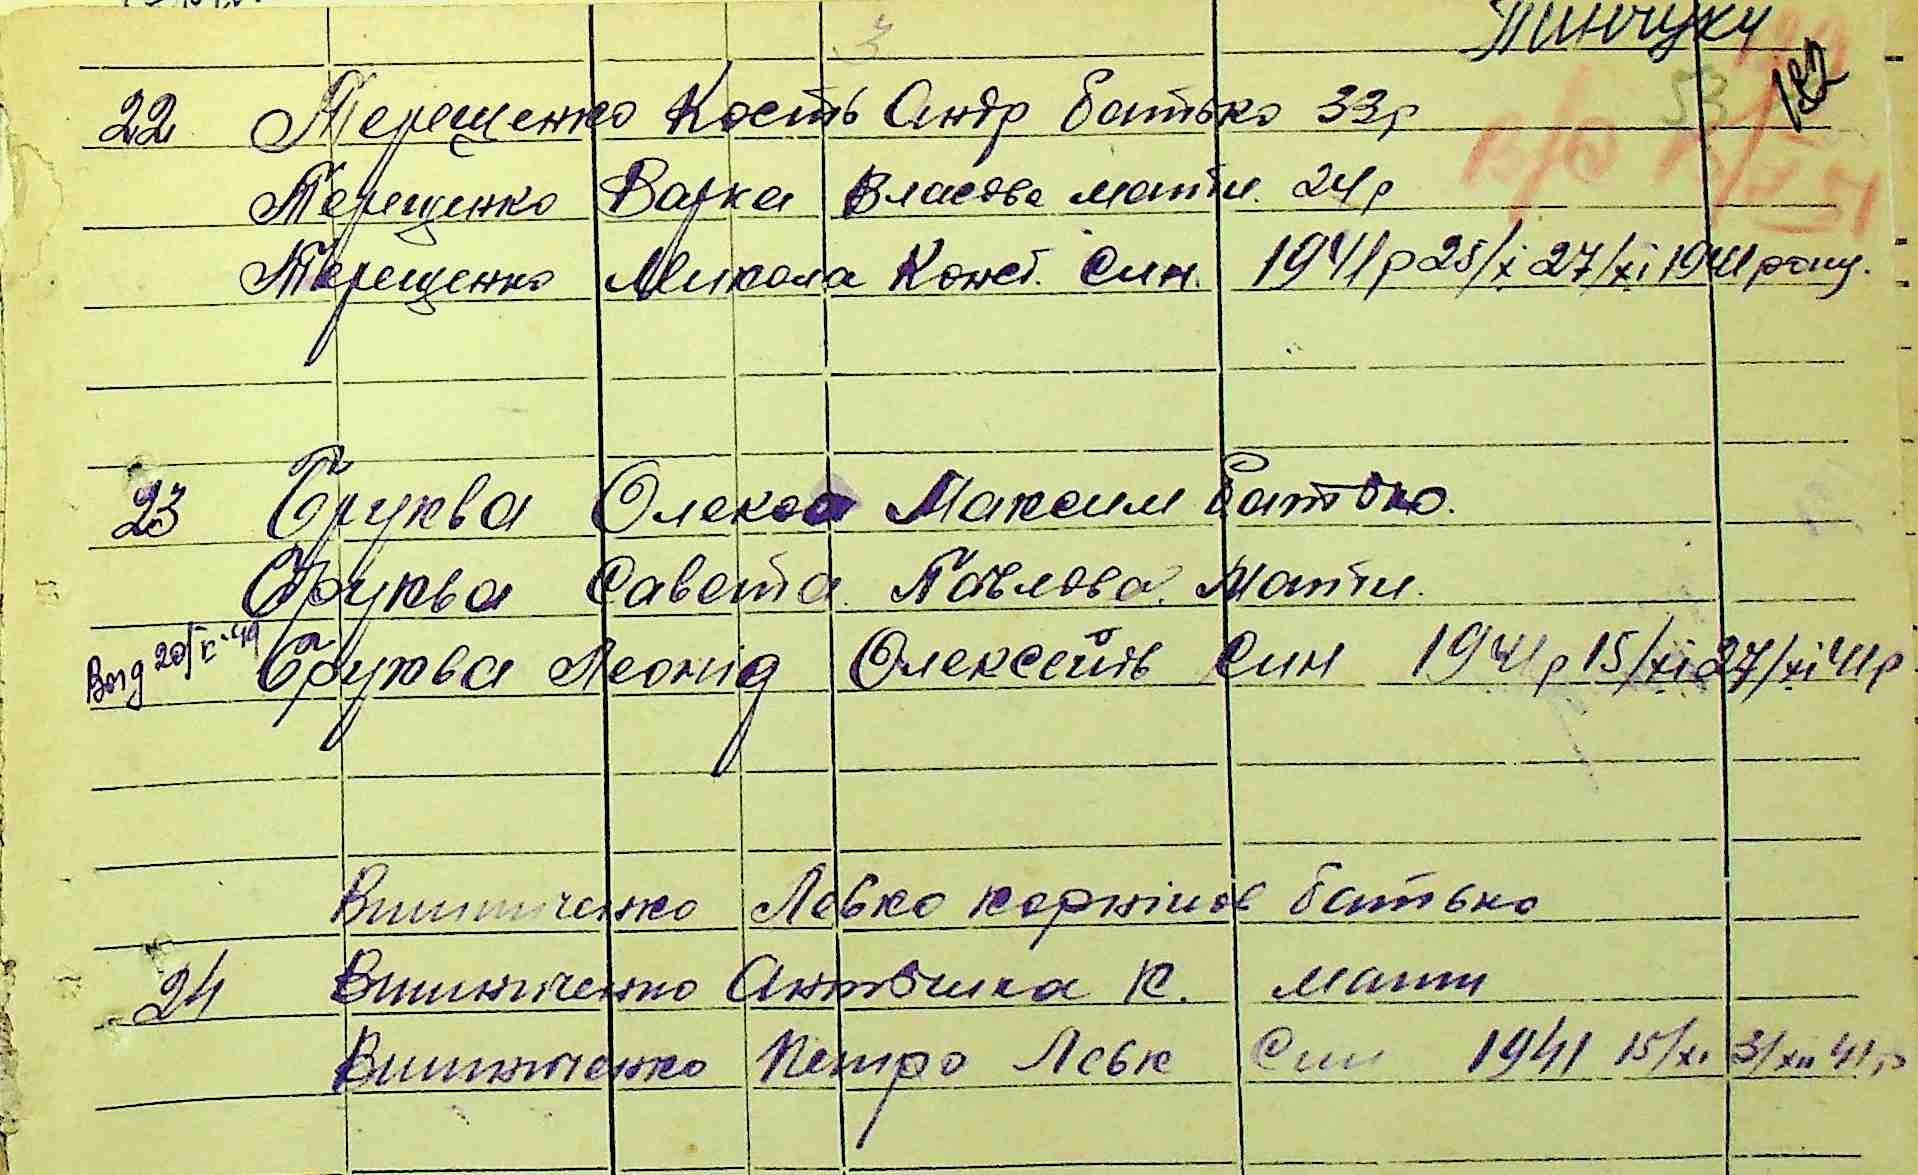 3
Тинчуки
53
182
22 Терещенко Кость Андр батько 33р
Терещенко Варка Власова мати. 24р
Терещенко Микола Конст. Син. 1941р 25/х 27/хі 1941 року.
23 Бруква Олекса Максим батько.
Бруква Савета Павлова. Мати.
20/ 49 Бруква Леонід Олексеїть Син 1941р 15/хі 27/хі 41р
Винниченко Левко корнінов батько
24 Винниченко Антонина К. мати
Винниченко Петро Левк Син 1941 15/хі 3/хіі 41р